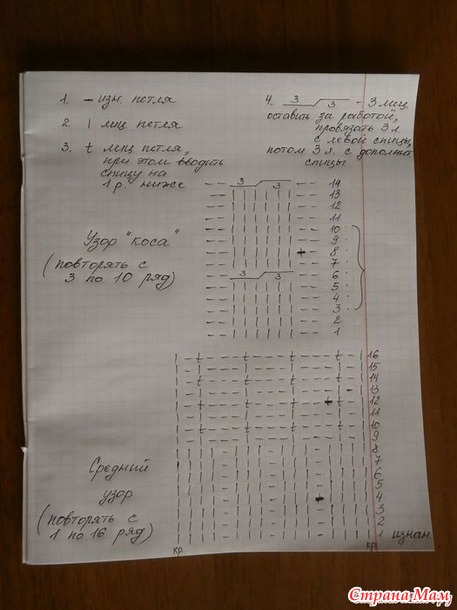 1. – изн. петля
2. | лиц. петля
3. t лиц. петля,
при этом вводить
спицу на
1 р. ниже
4. 3 3 – 3 лиц.
оставить за работой,
провязать 3 л.
с левой спицы,
потом 3 л. с дополнит.
спицы
Узор "коса"
(повторять с
3 по 10 ряд)
3 3
14
13
12
11
10
9
8
7
3 3
6
5
4
3
2
1
Средний
узор
(повторять с
1 по 16 ряд)
16
15
14
13
12
11
10
9
8
7
6
5
4
3
2
1 изнан.
кр. кр.
Страна Мам